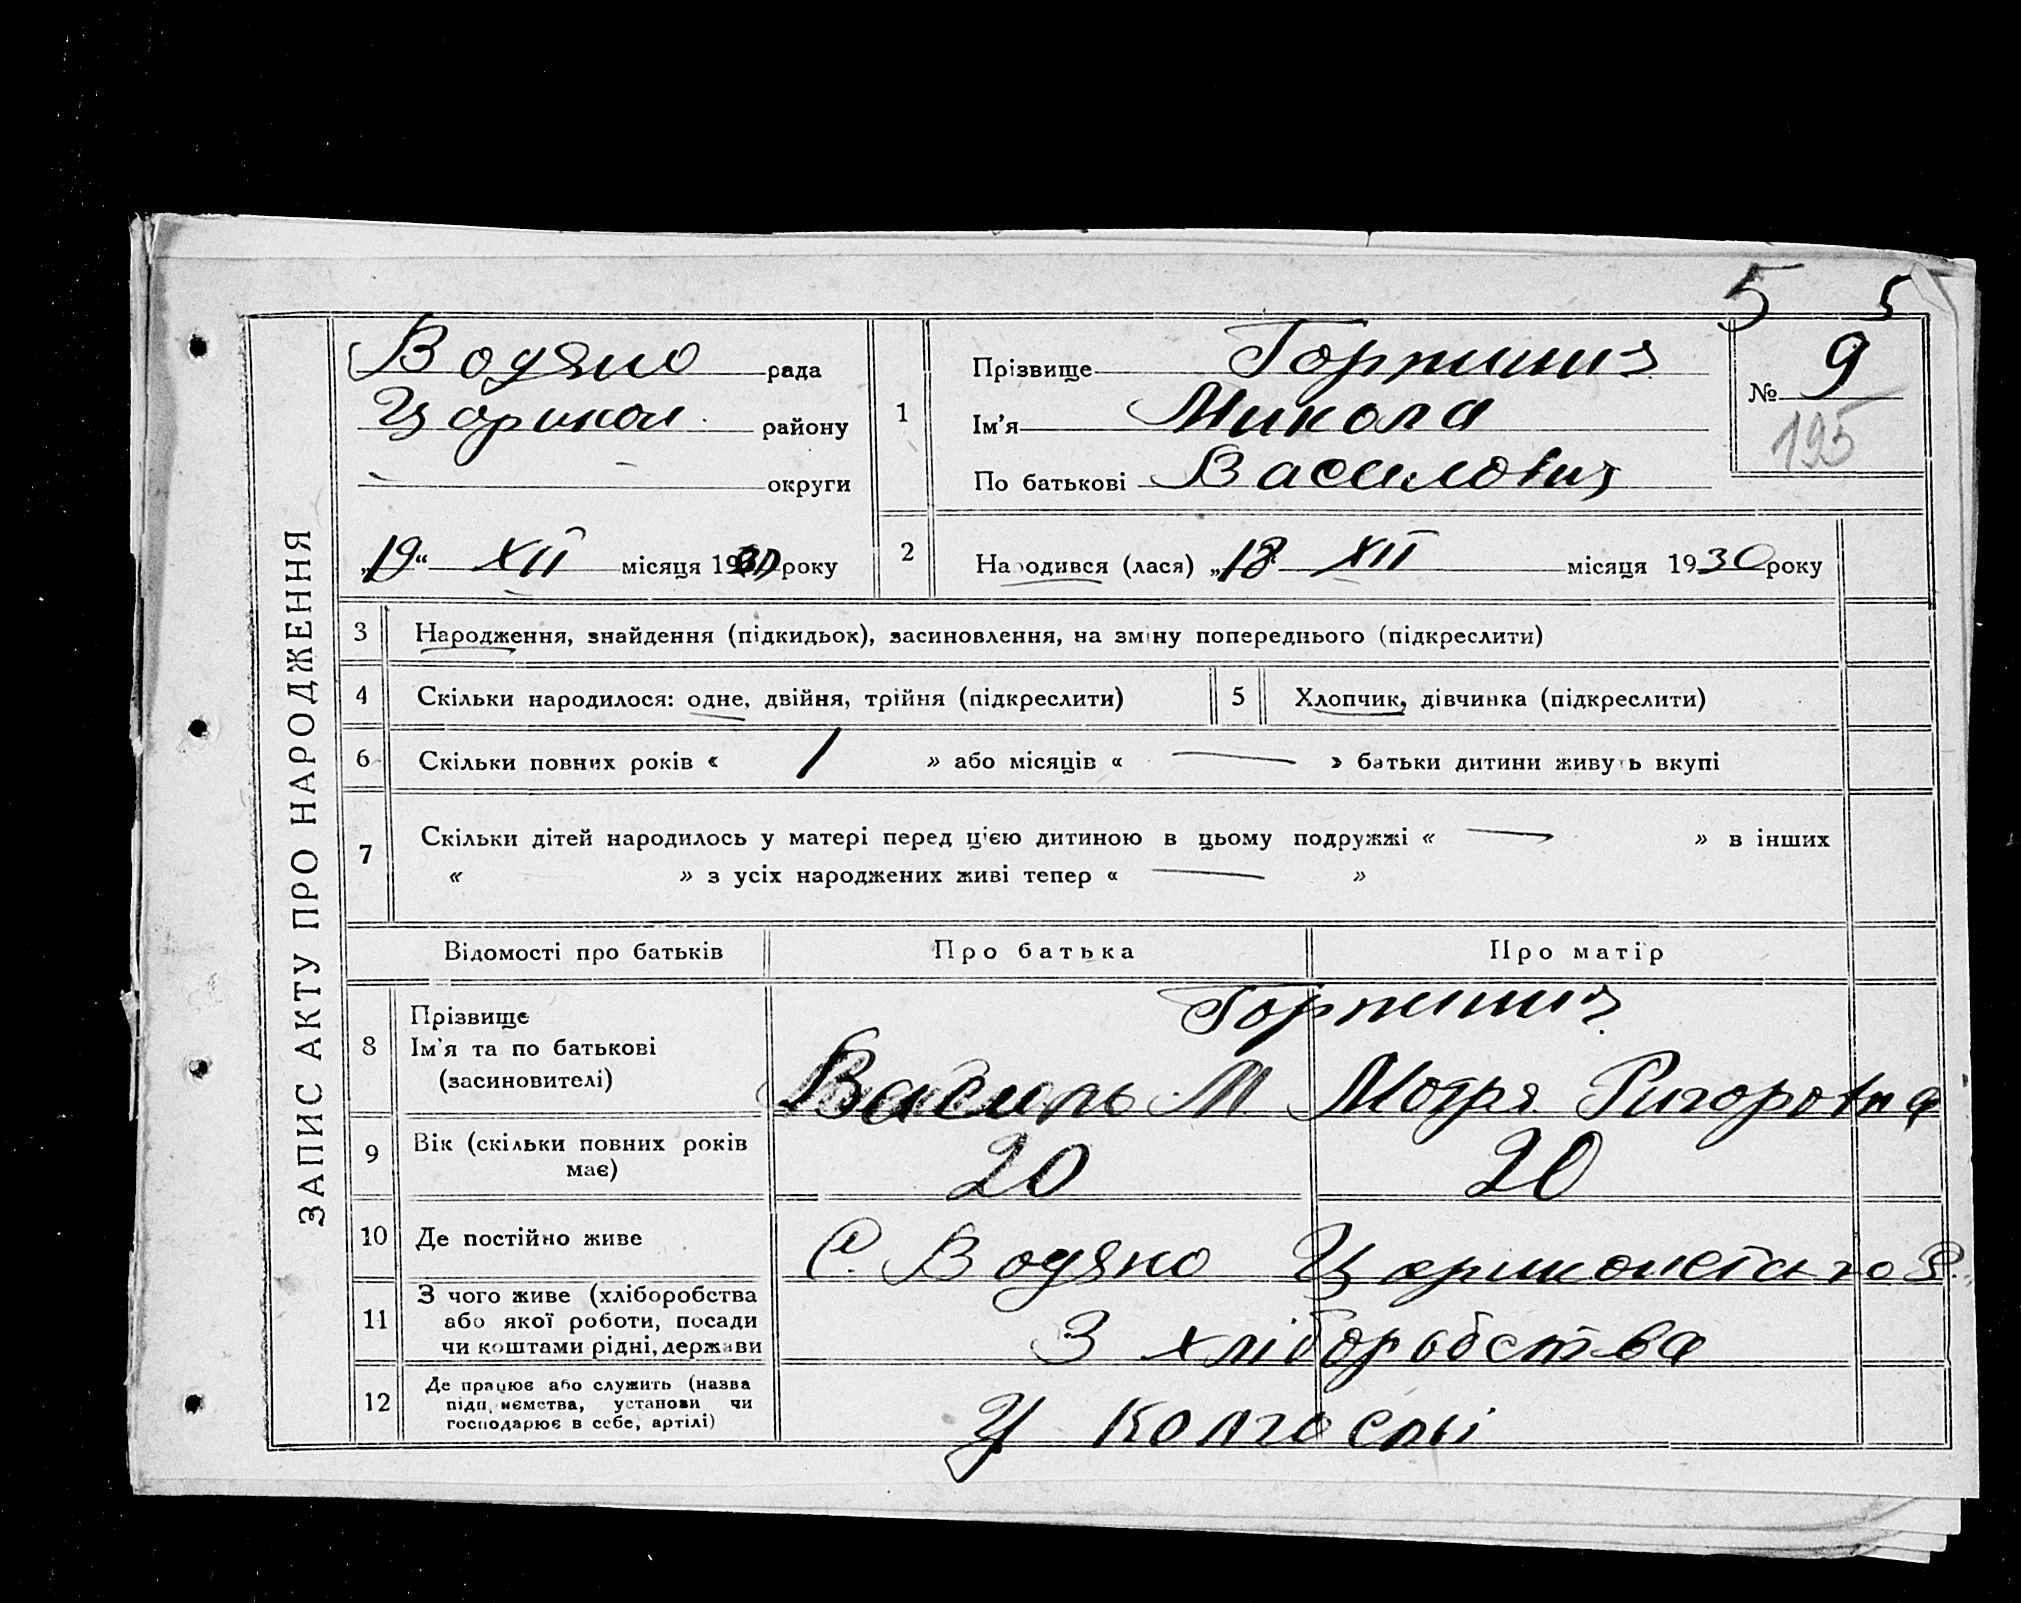 5 5
ЗАПИС АКТУ ПРО НАРОДЖЕННЯ
Водяно рада
Царичан. району
— округи
„19“ XII місяця 1930 року
1
Прізвище Горпинич
Ім'я Микола
По батькові Василович
№ 9
195
2 Народився (лася) „18“ XII місяця 1930 року
3 Народження, знайдення (підкидьок), засиновлення, на зміну попереднього (підкреслити)
4 Скільки народилося: одне, двійня, трійня (підкреслити) 5 Хлопчик, дівчинка (підкреслити)
6 Скільки повних років « 1 » або місяців « — » батьки дитини живуть вкупі
7 Скільки дітей народилось у матері перед цією дитиною в цьому подружжі « — » в інших
« » з усіх народжених живі тепер « — »
Відомості про батьків Про батька Про матір
8 Прізвище Горпинич
Ім'я та по батькові
(засиновителі) Василь М Мотря Ригоровна
9 Вік (скільки повних років
має) 20 20
10 Де постійно живе С. Водяно
11 З чого живе (хліборобства
або якої роботи, посади
чи коштами рідні, держави З хліборобства
12 Де працює або служить (назва
підприємства, установи чи
господарює в себе, артілі) У колгоспі